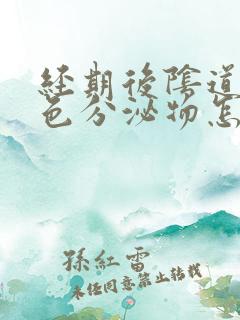 經期後陰道
色分泌物怎
孫紅雷
未任同意禁止轉載